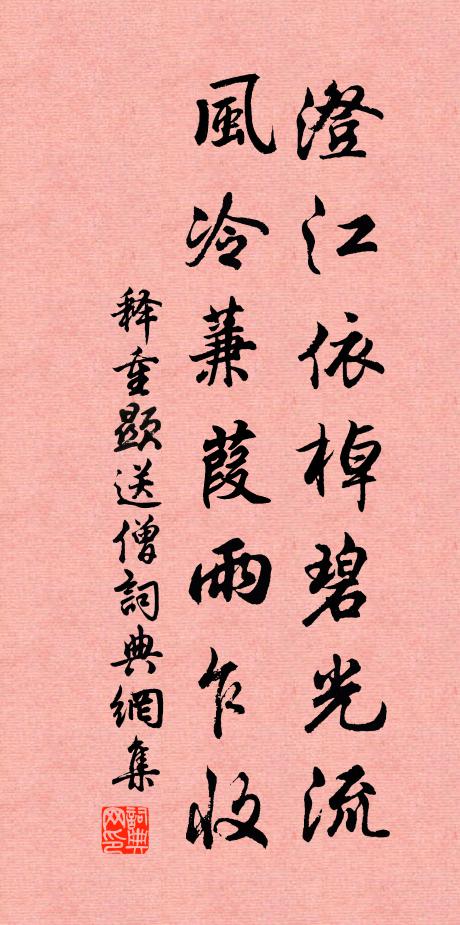 澄江依棹碧光流
風冷蒹葭雨乍收
释重顯送僧詞典網集
詞典网印